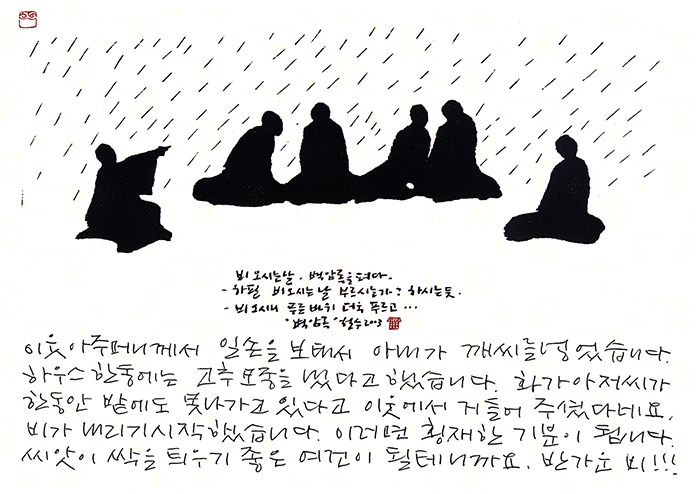 비오시는날. 벽암록을 펴다.
- 하필 비오시는날 부르시는가? 하시는듯.
- 비오시니 푸른바위 더욱 푸르고...
"벽암록" 철수 2003
이웃아주머니께서 일손을 보태서 아내가 깨씨를넣었습니다.
하우스한동에는 고추모종을 냈다고 했습니다. 화가아저씨가
한동안 밭에도 못나가고 있다고 이웃에서 거들어 주셨다네요.
비가 내리기시작했습니다. 이러면 횡재한 기분이 됩니다.
씨앗이 싹을 틔우기 좋은 여건이 될테니까요. 반가운 비!!!